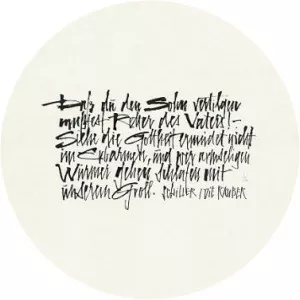 Daß du den Sohn vertilgen
mußtest Rächer des Vaters! –
Siehe die Gottheit ermüdet nicht
im Erbarmen, und wir armseligen
Würmer gehen schlafen mit
unserem Groll. SCHILLER / DIE RÄUBER